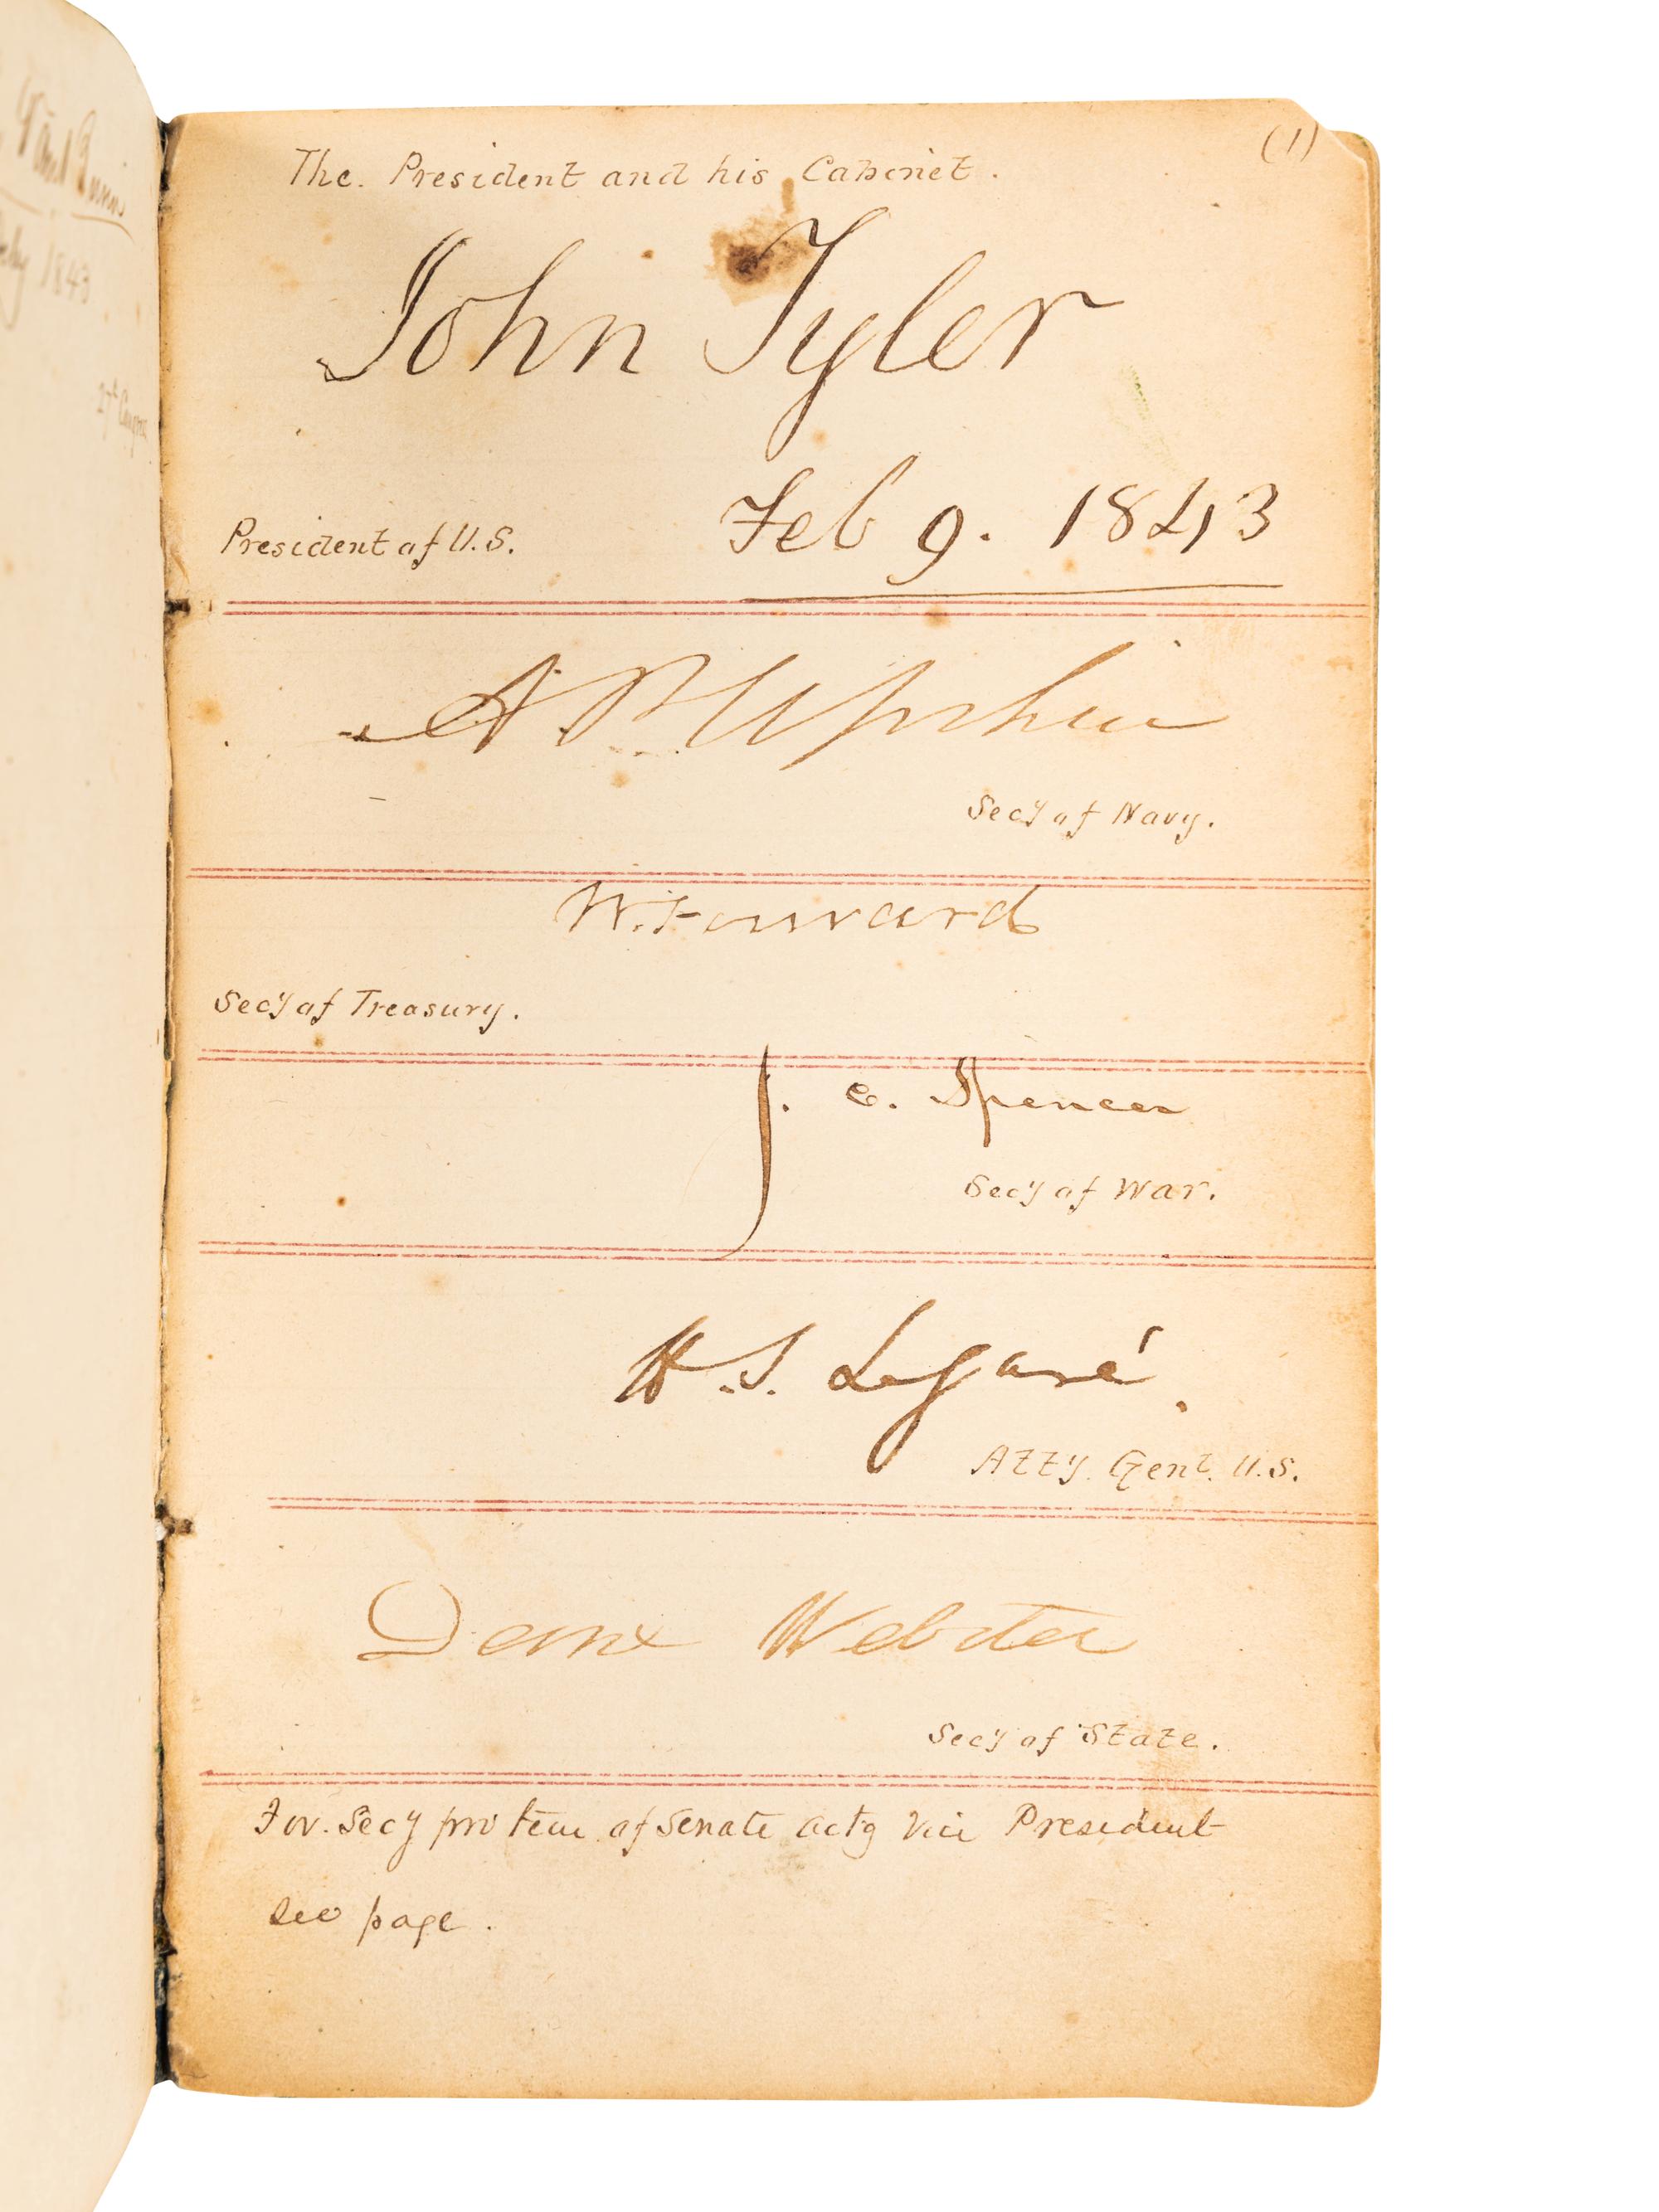 (1)
The. President and his Cabinet.
John Tyler
Feb 9. 1843
President of U.S.
A. P. Upshur
Secy of Navy.
W. Forward
Secy of Treasury.
J. C. Spencer
Secy of War.
H. S. Legaré.
Atty. Genl. U.S.
Danl Webster
Secy of State.
For. Secy pro tem of Senate actg Vice President
see page.
1843
27th Congress